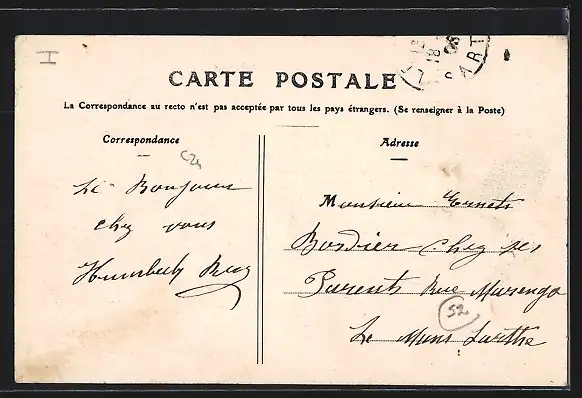 CARTE POSTALE
La Correspondance au recto n'est pas acceptée par tous les pays étrangers. (Se renseigner à la Poste)
Correspondance
Adresse
Bonjour
chez vous
Monsieur Ernets
Bordier chez ses
Parents Rue Marengo
52
Le Mans Sarthe
SART